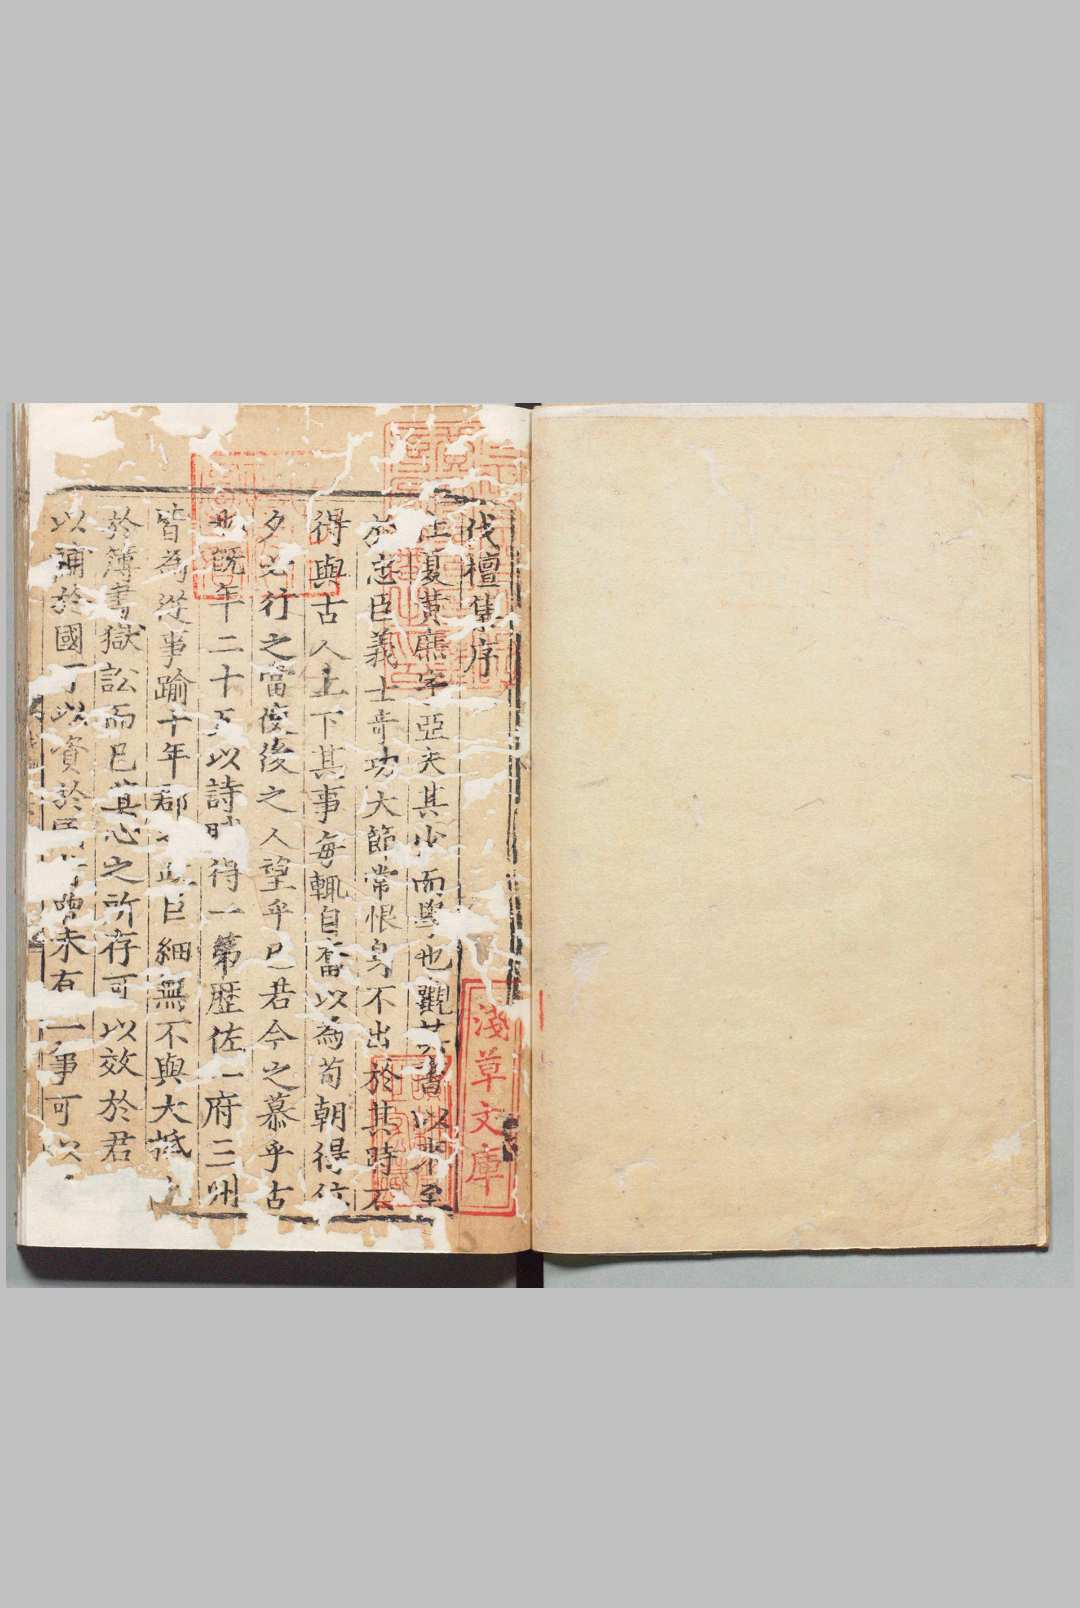 伐檀集序
江夏黃庶字亞夫其少而學也觀書以來至
於忠臣義士奇功大節常恨身不出於其時不
得與古人上下其事每輒自奮以為苟朝得位
夕必行之當使後之人望乎已若今之慕乎古
也既年二十五以詩賦得一第歷佐一府三州
皆為從事踰十年郡之政巨細無不與大抵止
於簿書獄訟而已其心之所存可以效於君
以補於國可以資於民曾未有一事可以
淺草文庫